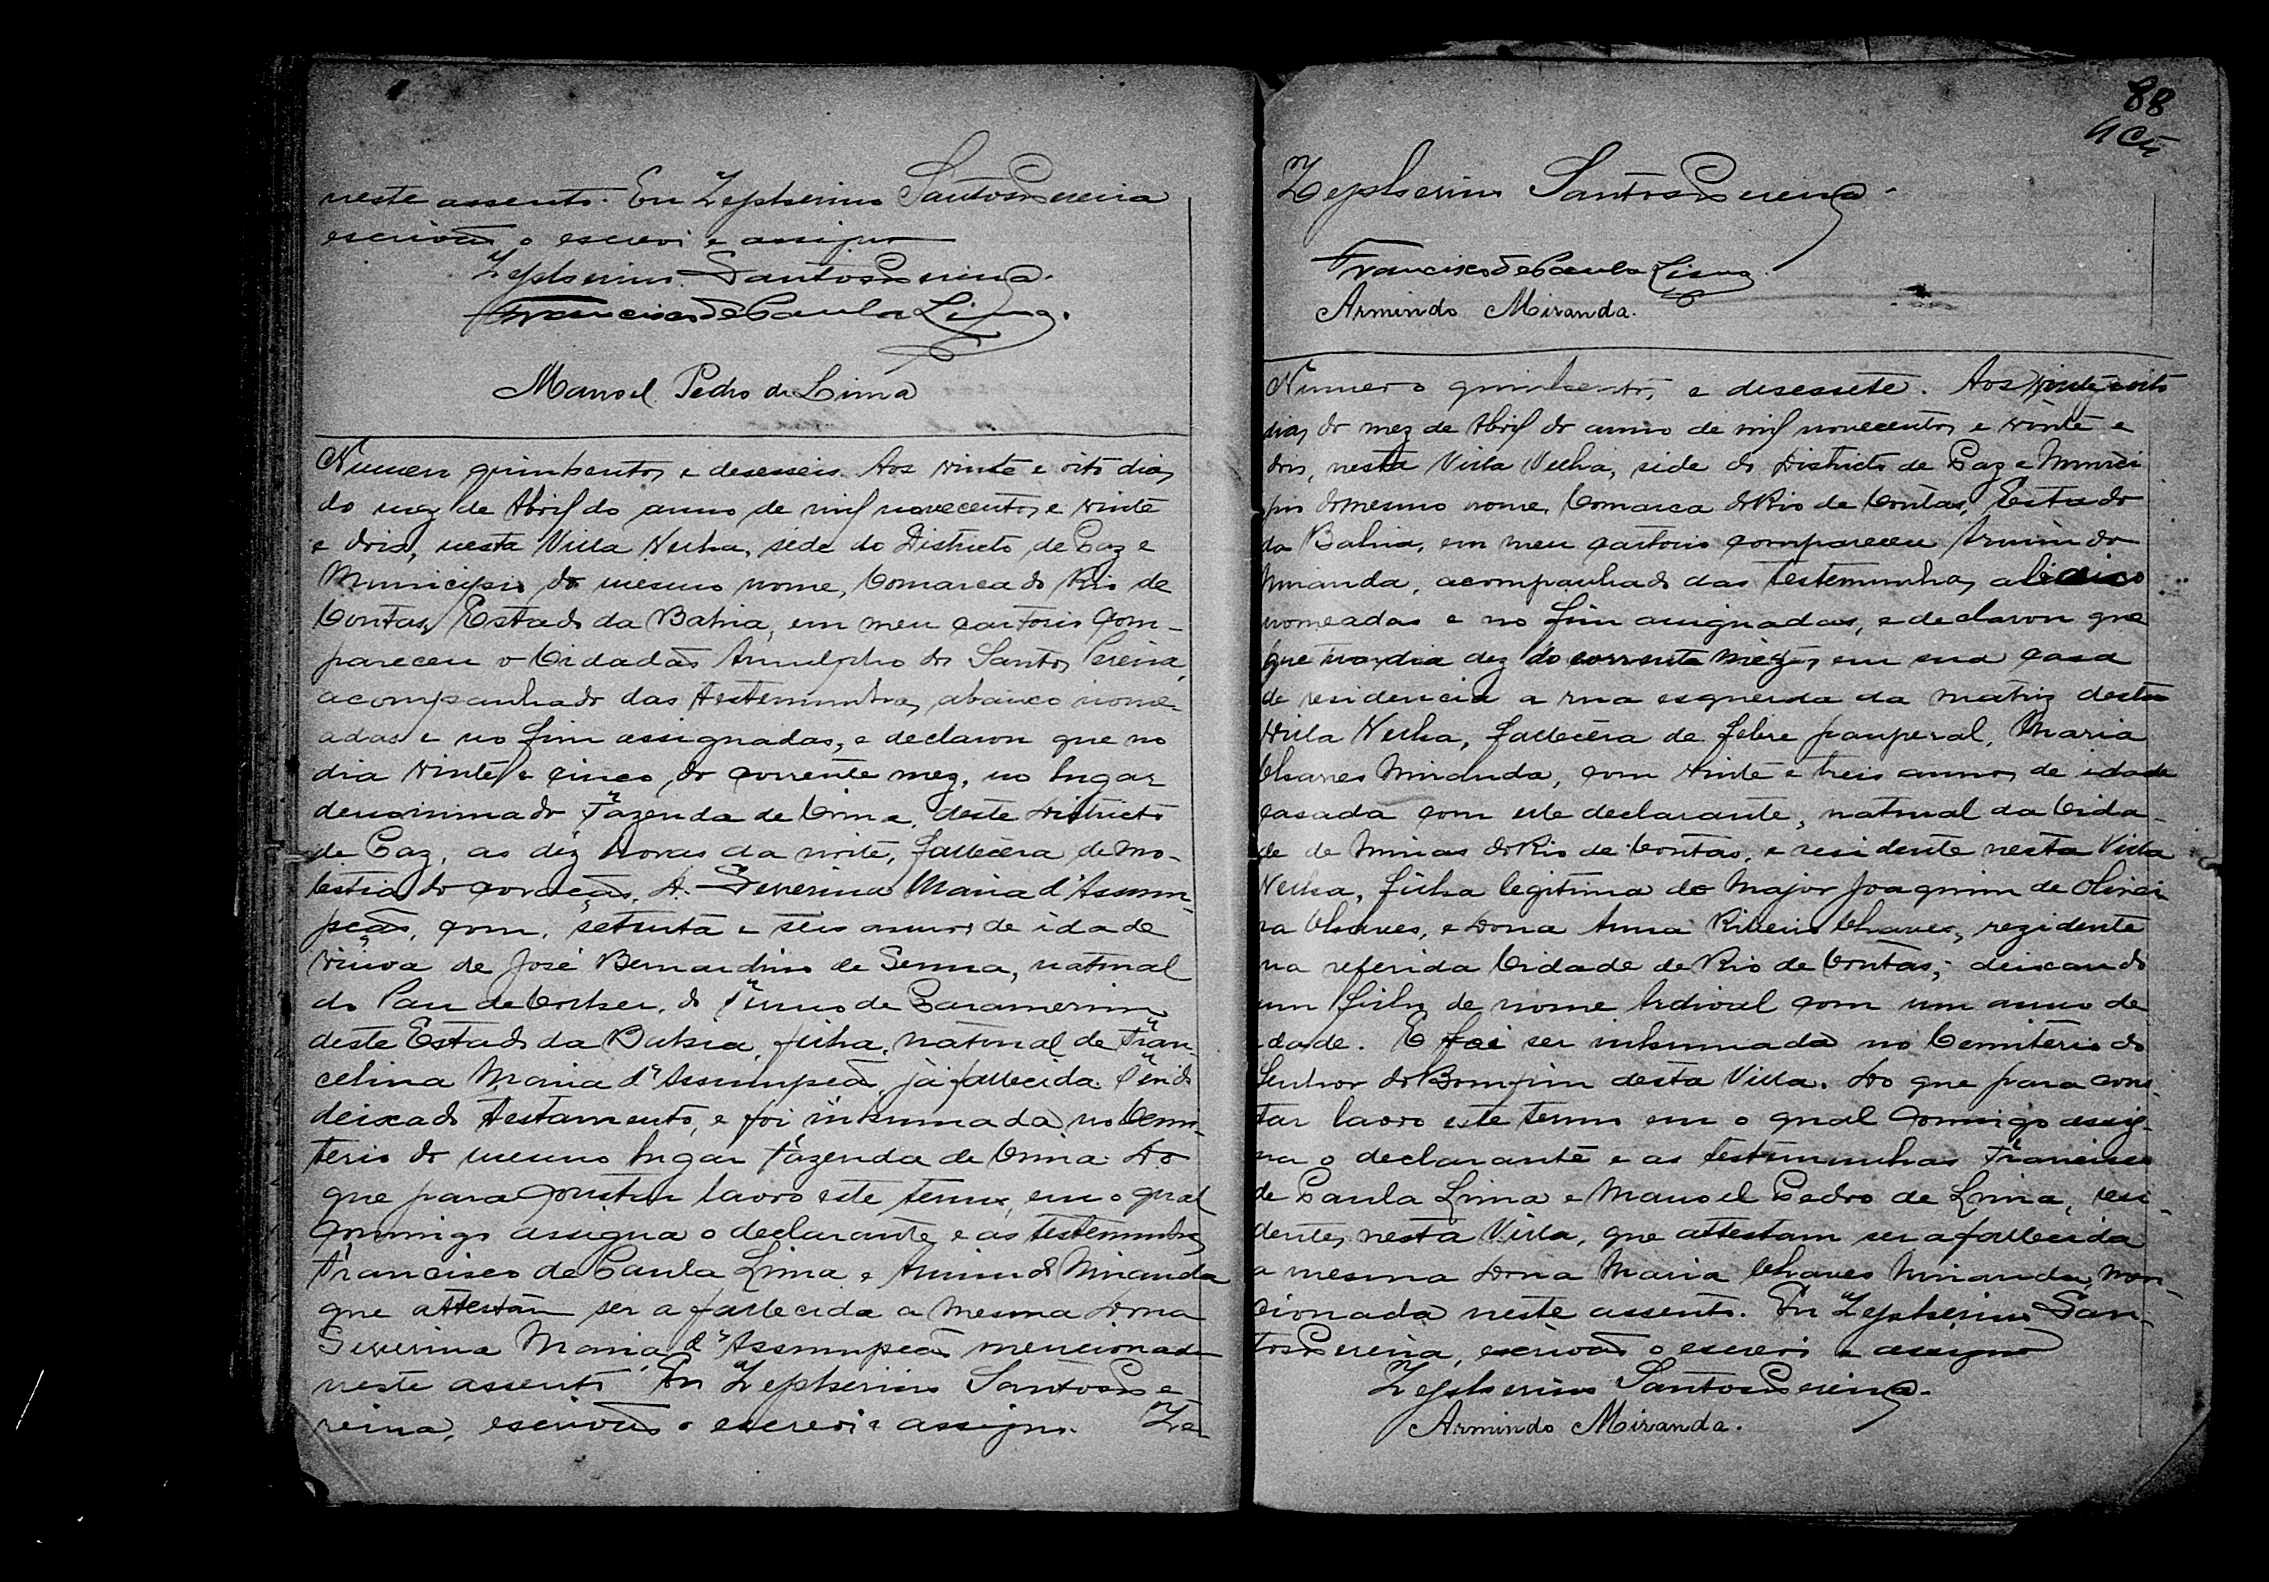 neste assento. Eu Zepherino Santos Pereira
escrivão o escrevi e assigno
Zepherino Santos Pereira.
Francisco de Paula Lima.
Manoel Pedro de Lima
Numero quinhentos e desesseis. Aos vinte e oito dias
do mez de Abril do anno de mil novecentos e vinte
e dois, nesta Villa Velha, séde do Districto de Paz e
Municipio do mesmo nome, Comarca do Rio de
Contas, Estado da Bahia, em meu cartorio com-
pareceu o Cidadão Arnulpho dos Santos Pereira,
acompanhado das testemunhas abaixo nome-
adas e no fim assignadas, e declarou que no
dia vinte e cinco do corrente mez, no lugar
denominado Fazenda de Cima, deste Districto
de Paz, as dez horas da noite, fallecêra de mo-
lestia do coração, D. Severina Maria d'Assum-
pção, com, setenta e seis annos de idade
viuva de José Bernardino de Senna, natural
do Pau de Colher, do Termo de Paramerim
deste Estado da Bahia, filha, natural de Fran-
celina Maria d'Assumpção, já fallecida. Tendo
deixado testamento, e foi inhumada no Cemi-
terio do mesmo lugar Fazenda de Cima. Do
que para constar lavro este termo, em o qual
commigo assigna o declarante e as testemunhas
Francisco de Paula Lima e Armindo Miranda
que attestam ser a fallecida a mesma Dona
Severina Maria d'Assumpção mencionada
neste assento Eu Zepherino Santos Pe-
reira, escrivão o escrevi e assigno. Ze
88
Zepherino Santos Pereira.
Francisco de Paula Lima.
Armindo Miranda.
Numero quinhentos, e desessete. Aos vinte e oito
dias do mez de Abril do anno de mil novecentos e vinte e
dois, nesta Villa Velha, séde do Districto de Paz e Munici
pio do mesmo nome, Comarca do Rio de Contas, Estado
da Bahia, em meu cartorio compareceu Armindo
Miranda, acompanhado das testemunhas abaixo
nomeadas e no fim assignadas, e declarou que
que no dia dez do corrente mez, em sua casa
de residencia a rua esquerda da matriz desta
Villa Velha, fallecêra de febre pauperal, Maria
Chaves Miranda, com vinte e treis annos de idade
casada com elle declarante, natural da Cida-
de de Minas do Rio de Contas, e residente nesta Villa
Velha, filha legitima do Major Joaquim de Olivei-
ra Chaves, e Dona Anna Ribeiro Chaves, rezidente
na referida Cidade de Rio de Contas, deixando
um filho de nome Ardival com um anno de
idade. E foi ser inhumada no Cemiterio do
Senhor do Bomfim desta Villa. Do que para cons
tar lavro este termo em o qual commigo assig-
na o declarante e as testemunhas Francisco
de Paula Lima e Manoel Pedro de Lima, resi-
dentes nesta Villa, que attestam ser a fallecida
a mesma Dona Maria Chaves Miranda, men-
cionada neste assento. Eu Zepherino San-
tos Pereira, escrivão o escrevi e assigno
Zepherino Santos Pereira.
Armindo Miranda.